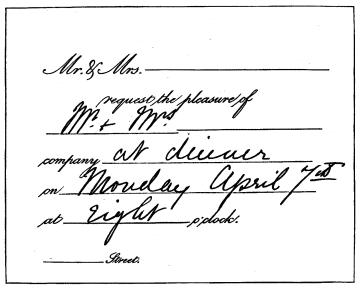 Mr. & Mrs.
request the pleasure of
Mr. & Mrs
company at dinner
on Monday April 7th
at Eight o'clock.
Street.